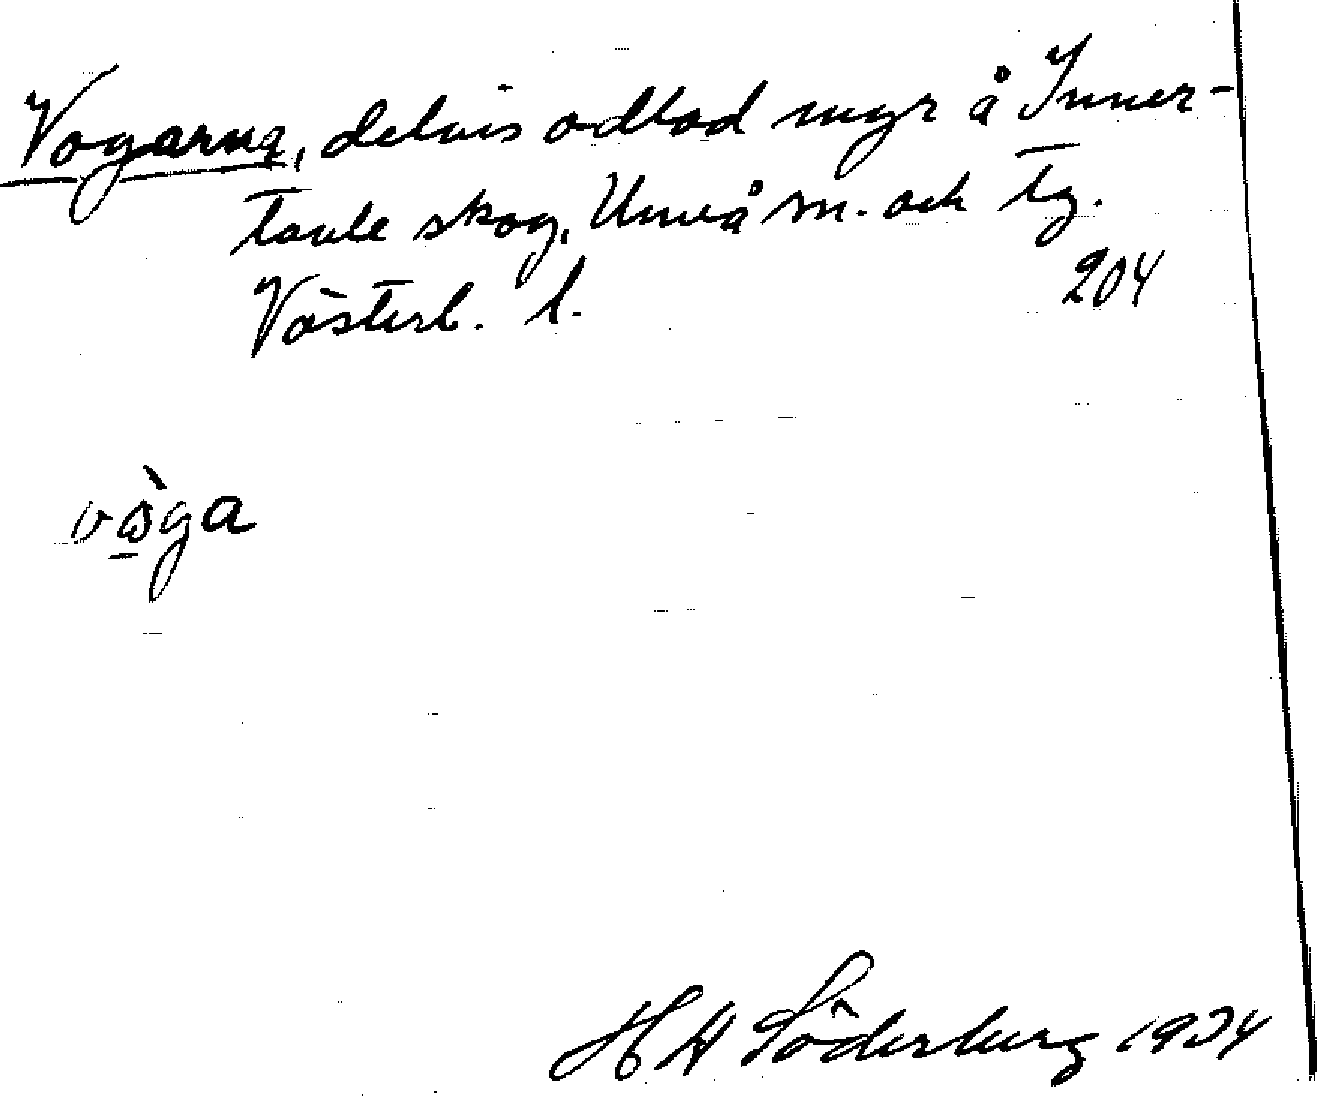 Vogarna, delvis odlad myr å Inner-
tavle skog, Umeå sn. och tg.
Västerb. l. 204
vò̱ga
H A Söderberg 1934